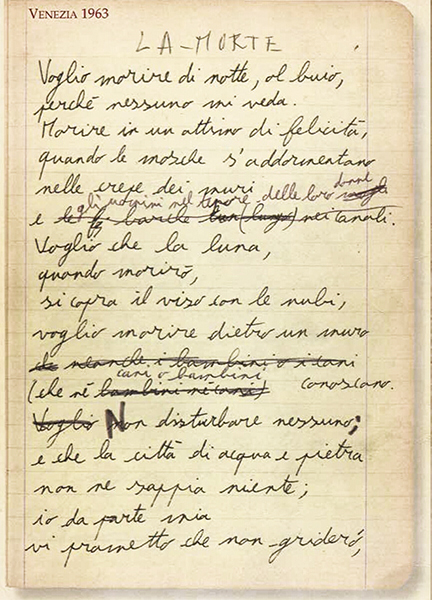 VENEZIA 1963
LA-MORTE
Voglio morire di notte, al buio,
perché nessuno mi veda.
Morire in un attimo di felicità,
quando le mosche s'addormentano
nelle crepe dei muri
e gli uomini nel tepore delle loro donne
le barche lun(lungo) nei canali.
Voglio che la luna,
quando morirò,
si copra il viso con le nubi,
voglio morire dietro un muro
che neanche i bambini o i cani
cani o bambini
(che né bambini né cani) conoscano.
Voglio Non disturbare nessuno;
e che la città di acqua e pietra
non ne sappia niente;
io da parte mia
vi prometto che non griderò,